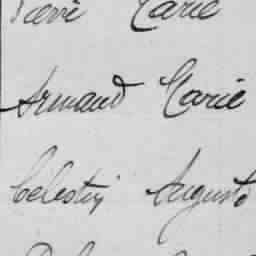 Marie
Armand Marie
Célestin Auguste